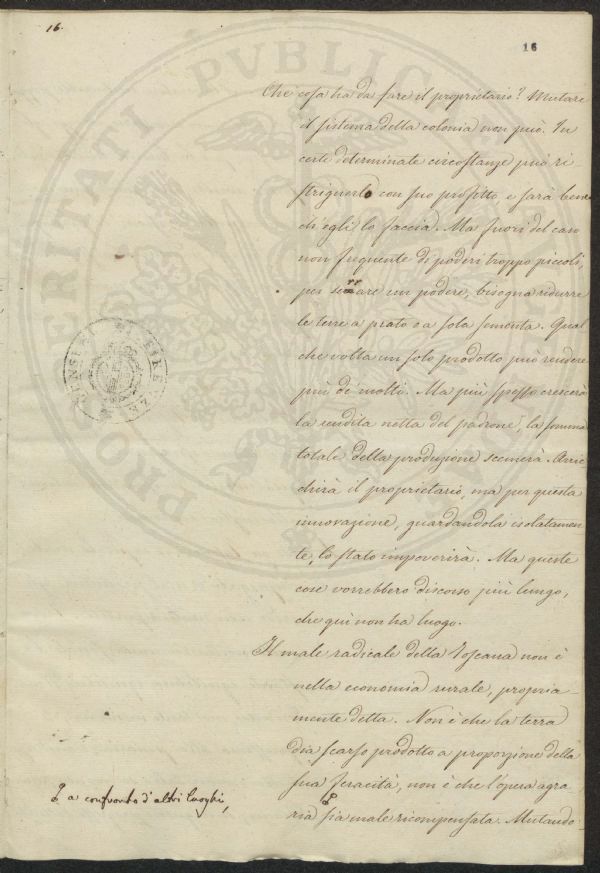 16.
16
Che cosa ha da fare il proprietario? Mutare
il sistema della colonia non può. In
certe determinate circostanze può ri
strignerlo con suo profitto, e sarà bene
ch'egli lo faccia. Ma fuori del caso
non frequente di poderi troppo piccoli,
per serrare un podere, bisogna ridurre
le terre a prato o a sola sementa. Qual
che volta un solo prodotto può rendere
più de' molti. Ma più spesso crescerà
la rendita netta del padrone, la somma
totale della produzione scemerà. Arric
chirà il proprietario, ma per questa
innovazione, guardandola isolatamen-
te, lo stato impoverirà. Ma queste
cose vorrebbero discorso più lungo,
che qui non ha luogo.
Il male radicale della Toscana non è
nella economia rurale, propria-
mente detta. Non è che la terra
dia scarso prodotto a proporzione della
sua feracità, non è che l'opera agra
ria sia male ricompensata. Mutando
a confronto d'altri luoghi,
PRO PVBLICAE